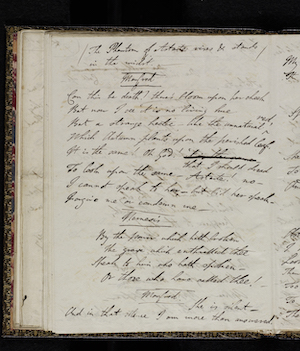 (The Phantom of Astarte rises & stands
in the midst.
Manfred
Can this be death? there's bloom upon her cheek
But now I see it is no living hue
But a strange hectic, like the unnatural red
Which Autumn plants upon the perished leaf.
It is the same! Oh God!
that I should dread
To look upon the same — Astarte! — no —
I cannot speak to her — but bid her speak —
Forgive me or condemn me —
Nemesis
By the power which hath broken
The grave which enthralled thee
Speak to him who hath spoken —
Or those who have called thee!
Manfred
She is silent —
And in that silence I am more than answered